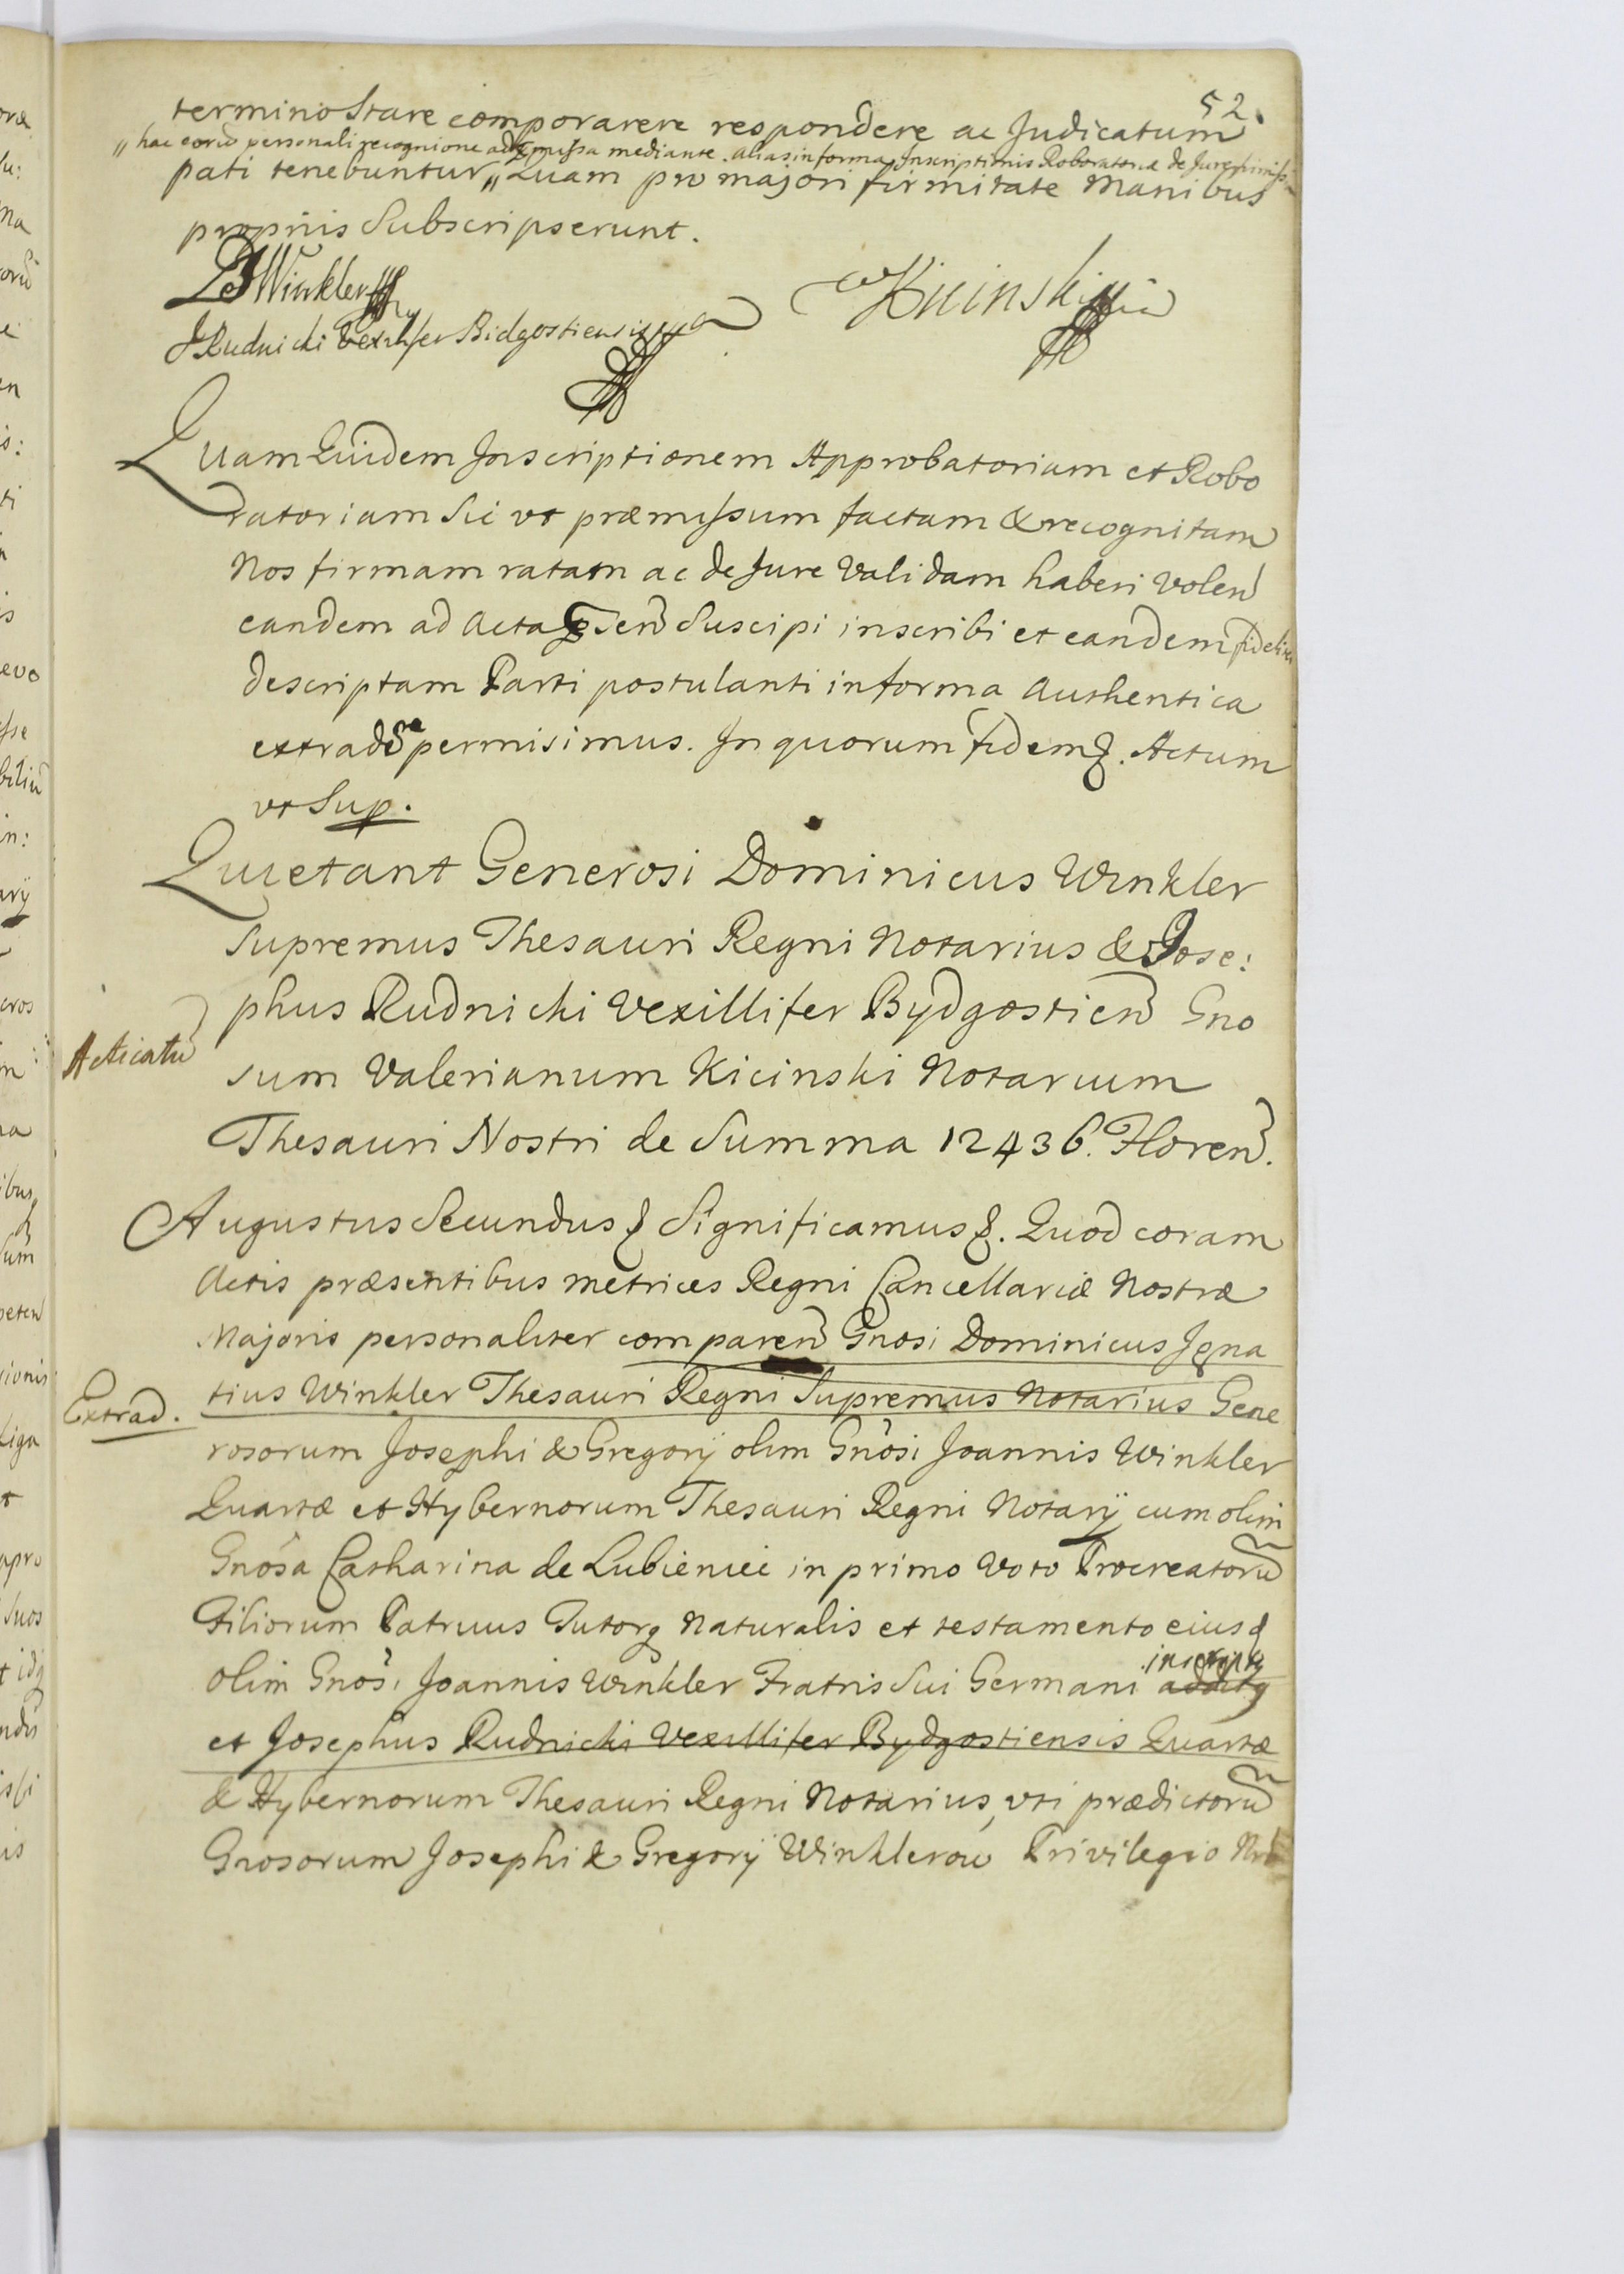 52.
termino Stare comporarere respondere ac Judicatum
„ hac eorū personali recognione ad præmissa mediante. alias in forma Inscriptionis Roboratoriæ de Jure
pati tenebuntur „ Quam pro majori firmitate Manibus
propriis Subscripserunt.
DJ Winkler
Kicinski
J Rudnicki Vexilifer Bidgostiensis
Quam Quidem Inscriptionem Approbatoriam et Robo
ratoriam Sic vt præmissum factam & recognitam
Nos firmam ratam ac de Jure Validam haberi Volen
eandem ad Acta p̄sen Suscipi inscribi et eandem fideliter
descriptam Parti postulanti in forma Authentica
extradere permisimus. In quorum fidem &. Actum
vt Sup.
Quietant Generosi Dominicus Winkler
Supremus Thesauri Regni Notarius & Jose:
phus Rudnicki Vexillifer Bydgostien Gno
Acticatū
sum Valerianum Kicinski Notarium
Thesauri Nostri de Summa 12436. Floren.
Augustus Secundus & Significamus &. Quod coram
Actis præsentibus metrices Regni Cancellariæ Nostræ
Majoris personaliter comparen Gnosi Dominicus Igna
Extrad.
tius Winkler Thesauri Regni Supremus Notarius Gene
rosorum Josephi & Gregorij olim Gnosi Joannis Winkler
Quartæ et Hybernorum Thesauri Regni Notarij cum olim
Gnosa Catharina de Lubieniec in primo Voto Procreatorū
Filiorum Patruus Tutorq naturalis et testamento eiusd
inscriptq
olim Gnosi Joannis Winkler Fratris Sui Germani additq
et Josephus Rudnicki Vexillifer Bydgostiensis Quartæ
& Hybernorum Thesauri Regni Notarius, vti prædictorū
Gnosorum Josephi & Gregorij Winklerow, Privilegio